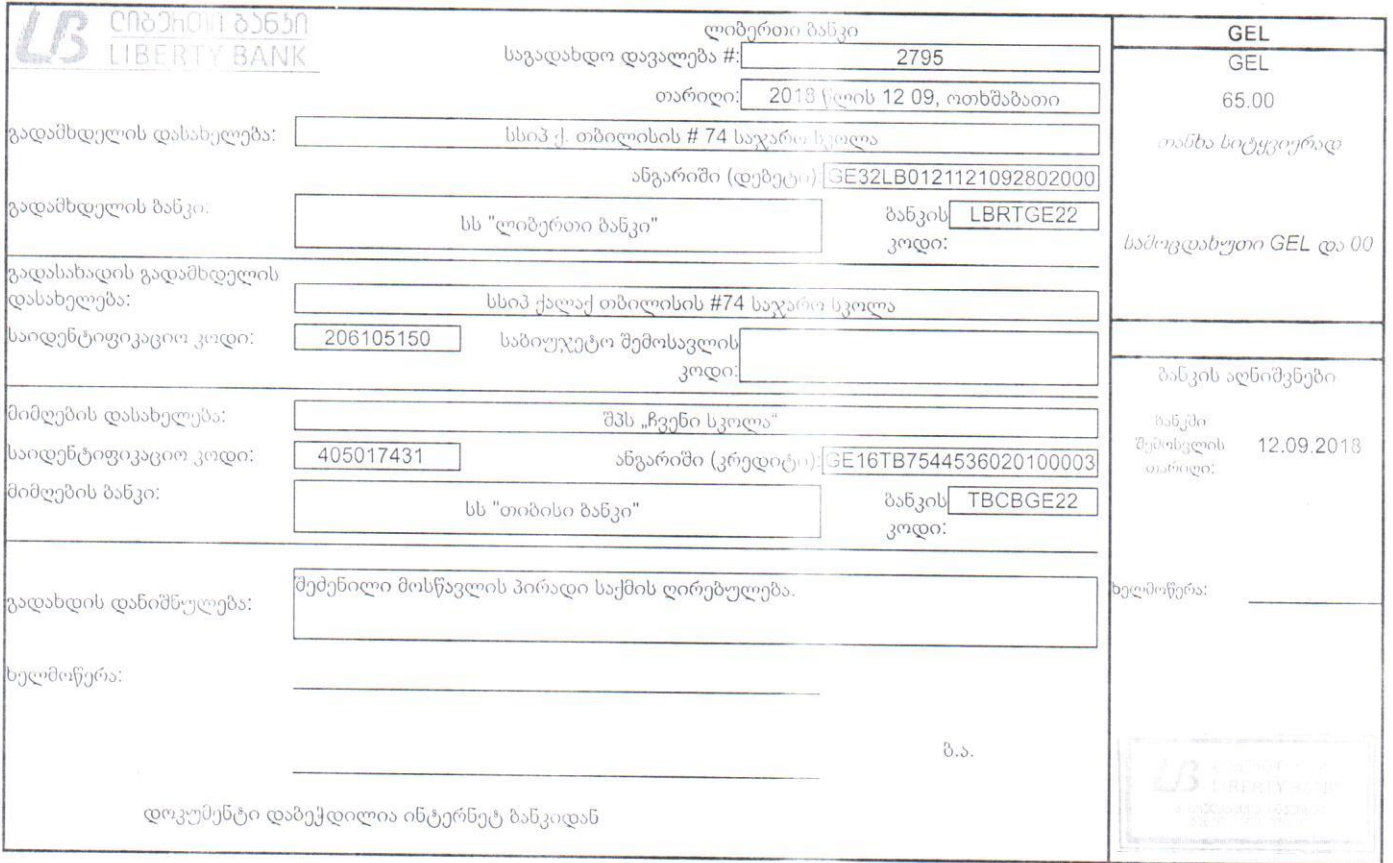 ლიბერთი ბანკი
LIBERTY BANK
ლიბერთი ბანკი
საგადახდო დავალება #: 2795
თარიღი: 2018 წლის 12 09, ოთხშაბათი
გადამხდელის დასახელება: სსიპ ქ. თბილისის # 74 საჯარო სკოლა
ანგარიში (დებეტი): GE32LB0121121092802000
გადამხდელის ბანკი: სს "ლიბერთი ბანკი" ბანკის კოდი: LBRTGE22
გადასახადის გადამხდელის
დასახელება: სსიპ ქალაქ თბილისის #74 საჯარო სკოლა
საიდენტიფიკაციო კოდი: 206105150 საბიუჯეტო შემოსავლის
კოდი:
მიმღების დასახელება: შპს „ჩვენი სკოლა“
საიდენტიფიკაციო კოდი: 405017431 ანგარიში (კრედიტი): GE16TB7544536020100003
მიმღების ბანკი: სს "თიბისი ბანკი" ბანკის კოდი: TBCBGE22
გადახდის დანიშნულება: შეძენილი მოსწავლის პირადი საქმის ღირებულება.
ხელმოწერა:
ბ.ა.
დოკუმენტი დაბეჭდილია ინტერნეტ ბანკიდან
GEL
GEL
65.00
თანხა სიტყვიერად
სამოცდახუთი GEL და 00
ბანკის აღნიშვნები
ბანკში
შემოსვლის 12.09.2018
თარიღი:
ხელმოწერა:
LIBERTY BANK